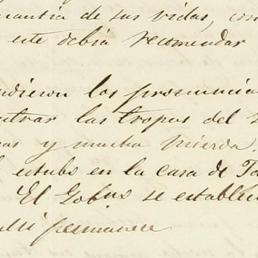 uantia de sus vidas, con
este debia recomendar
ndieron los pronuncia
ntrar las tropas del
as y mucha mierda.
estubo en la casa de To
El Gobno se establec
alli permanece